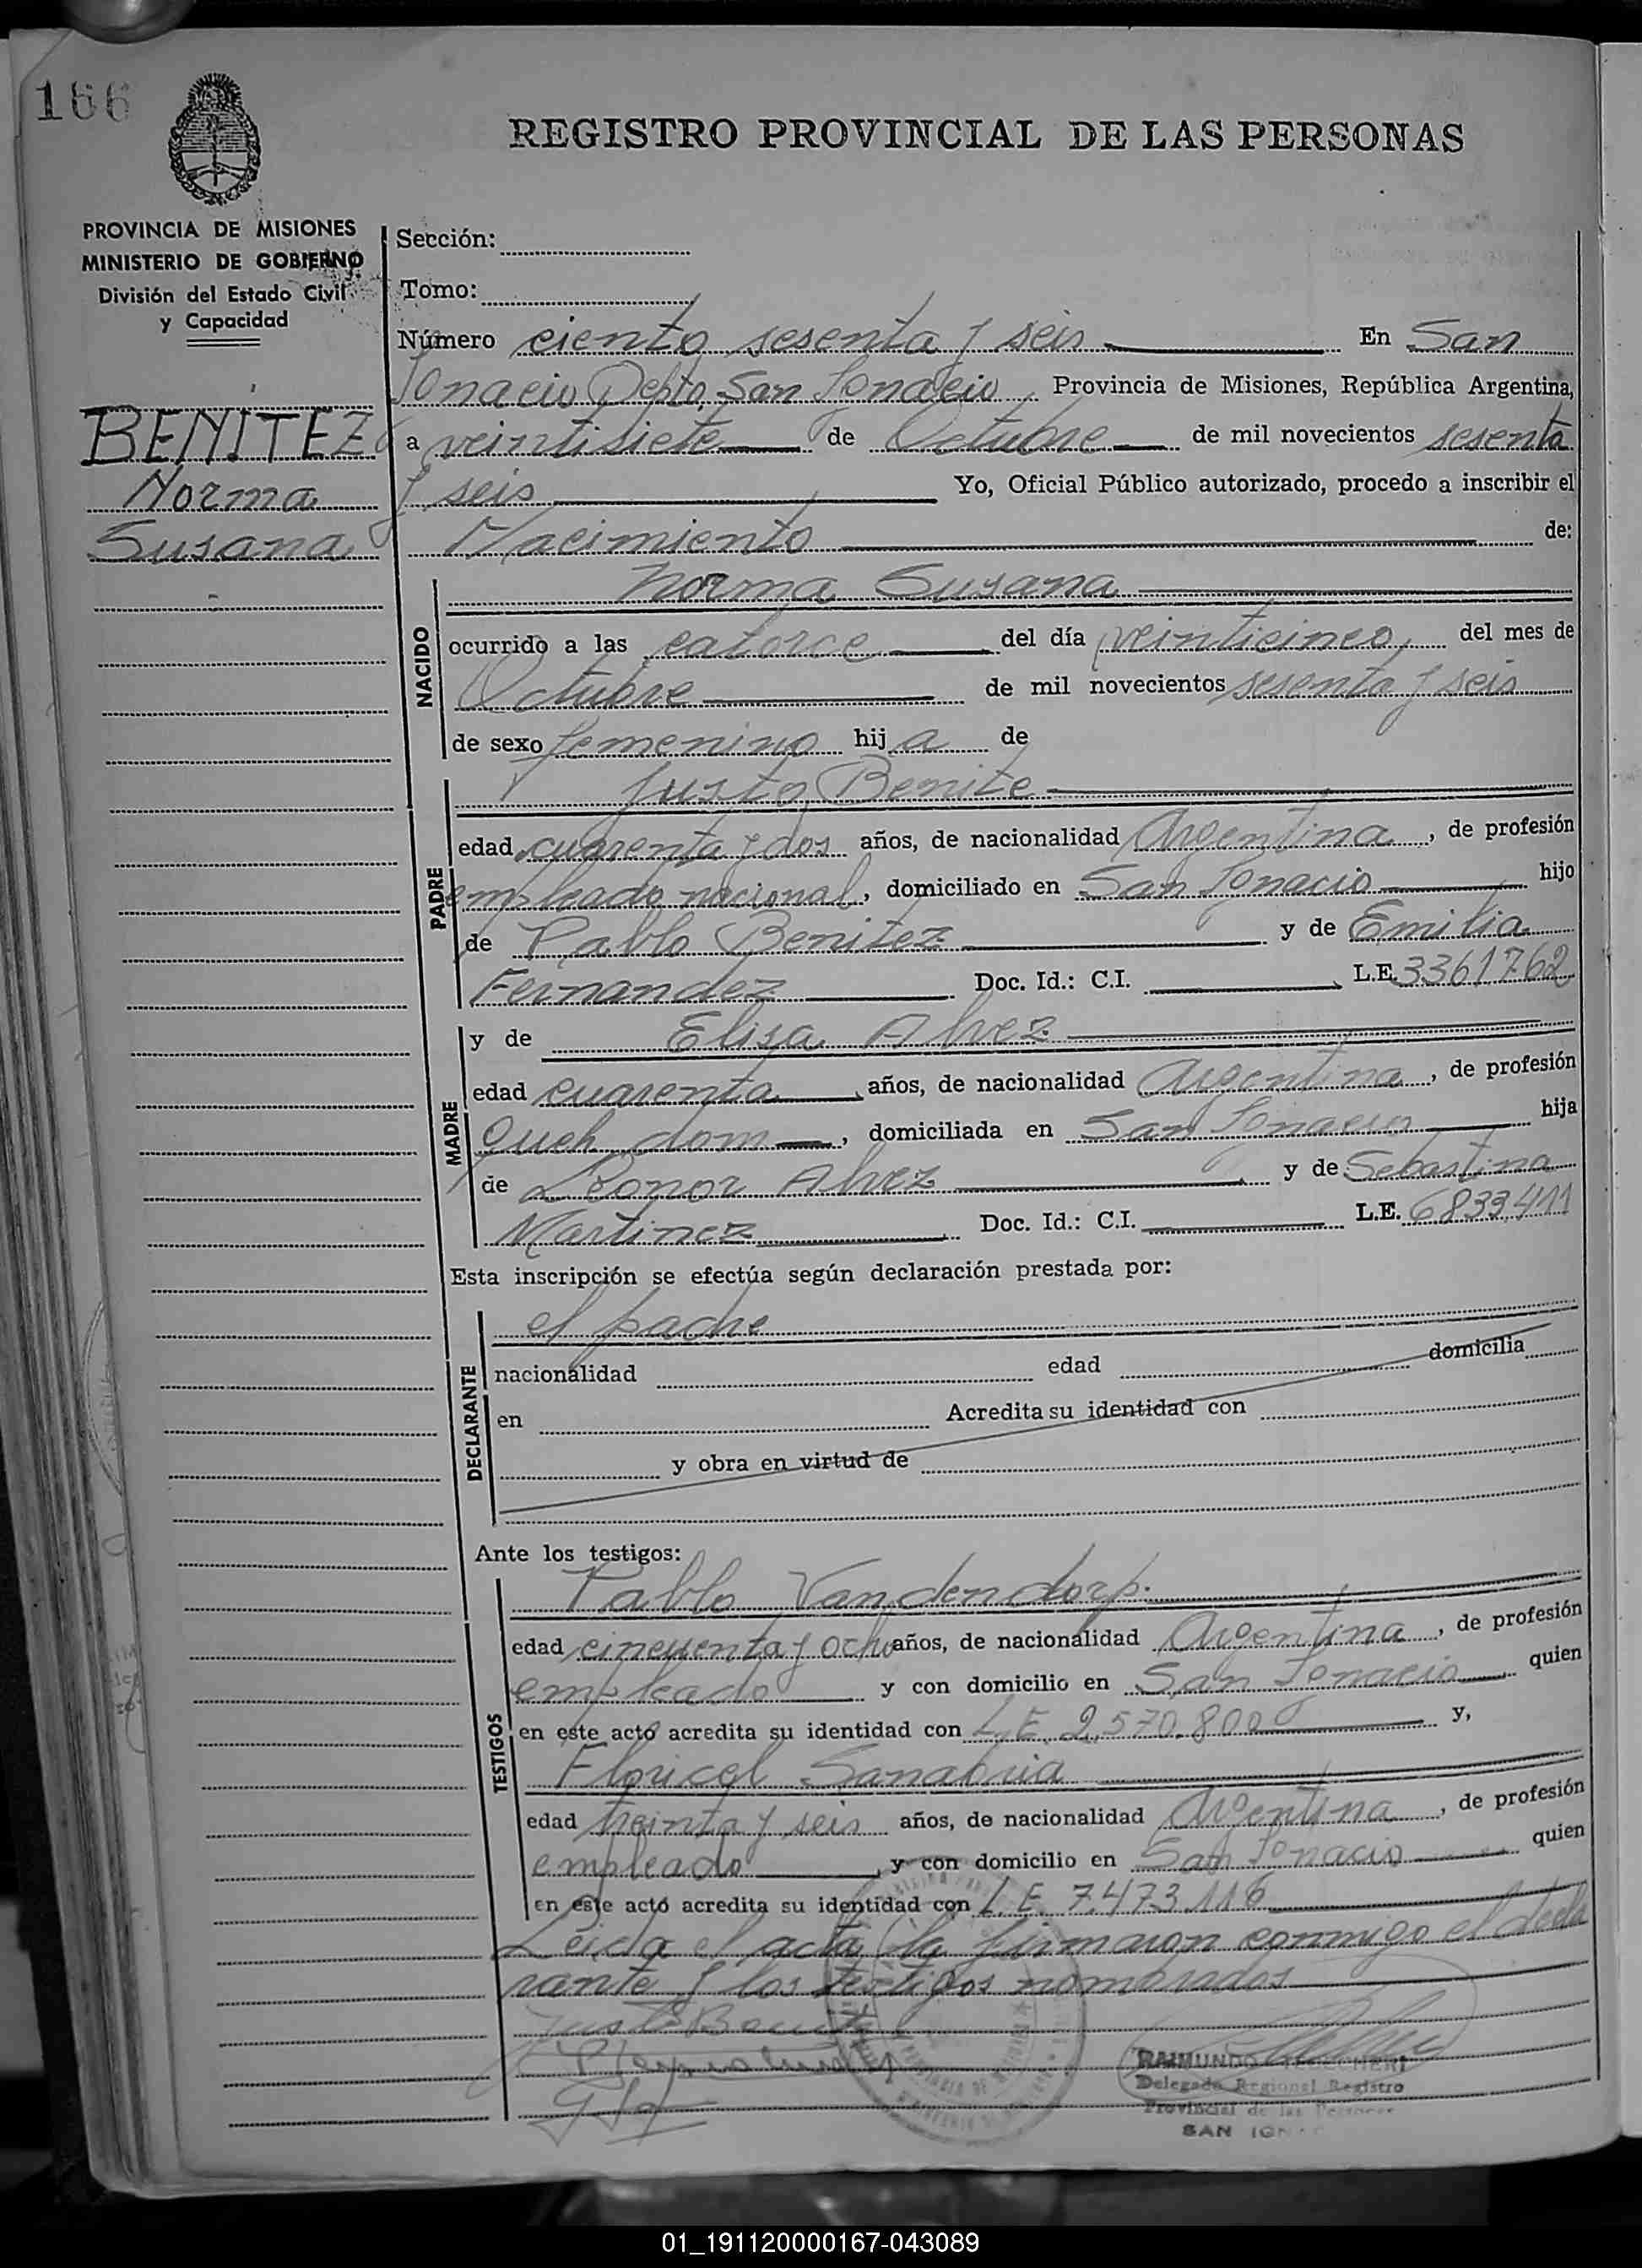 166
REGISTRO PROVINCIAL DE LAS PERSONAS
PROVINCIA DE MISIONES
MINISTERIO DE GOBIERNO
División del Estado Civil
y Capacidad
BENITEZ
Norma
Susana
Sección:
Tomo:
Número ciento sesenta y seis En San
Ignacio Depto. San Ignacio, Provincia de Misiones, República Argentina,
a veintisiete de Octubre de mil novecientos sesenta
y seis Yo, Oficial Público autorizado, procedo a inscribir el
Nacimiento de:
NACIDO
Norma Susana
ocurrido a las catorce del día veinticinco, del mes de
Octubre de mil novecientos sesenta y seis
de sexo femenino hij a de
PADRE
Justo Benite
edad cuarenta y dos años, de nacionalidad Argentina, de profesión
empleado nacional, domiciliado en San Ignacio hijo
de Pablo Benitez y de Emilia
Fernandez Doc. Id.: C.I. L.E. 3361762
MADRE
y de Elisa Alvez
edad cuarenta años, de nacionalidad Argentina, de profesión
Queh. dom, domiciliada en San Ignacio hija
de Leonor Alvez y de Sebastina
Martinez Doc. Id.: C.I. L.E. 6833411
Esta inscripción se efectúa según declaración prestada por:
DECLARANTE
el padre
nacionalidad edad domicilia
en Acredita su identidad con
y obra en virtud de
Ante los testigos:
TESTIGOS
Pablo Vandendorp.
edad cincuenta y ocho años, de nacionalidad Argentina, de profesión
empleado y con domicilio en San Ignacio quien
en este acto acredita su identidad con L.E. 2.570.800 y,
Floricel Sanabria
edad treinta y seis años, de nacionalidad Argentina, de profesión
empleado, y con domicilio en San Ignacio quien
en este acto acredita su identidad con L.E. 7.473.116
Leida el acta, la firmaron conmigo el decla
rante y los testigos nombrados
Justo Benite
RAIMUNDO
Delegado Regional Registro
Provincial de las Personas
SAN IGN
01_191120000167-043089